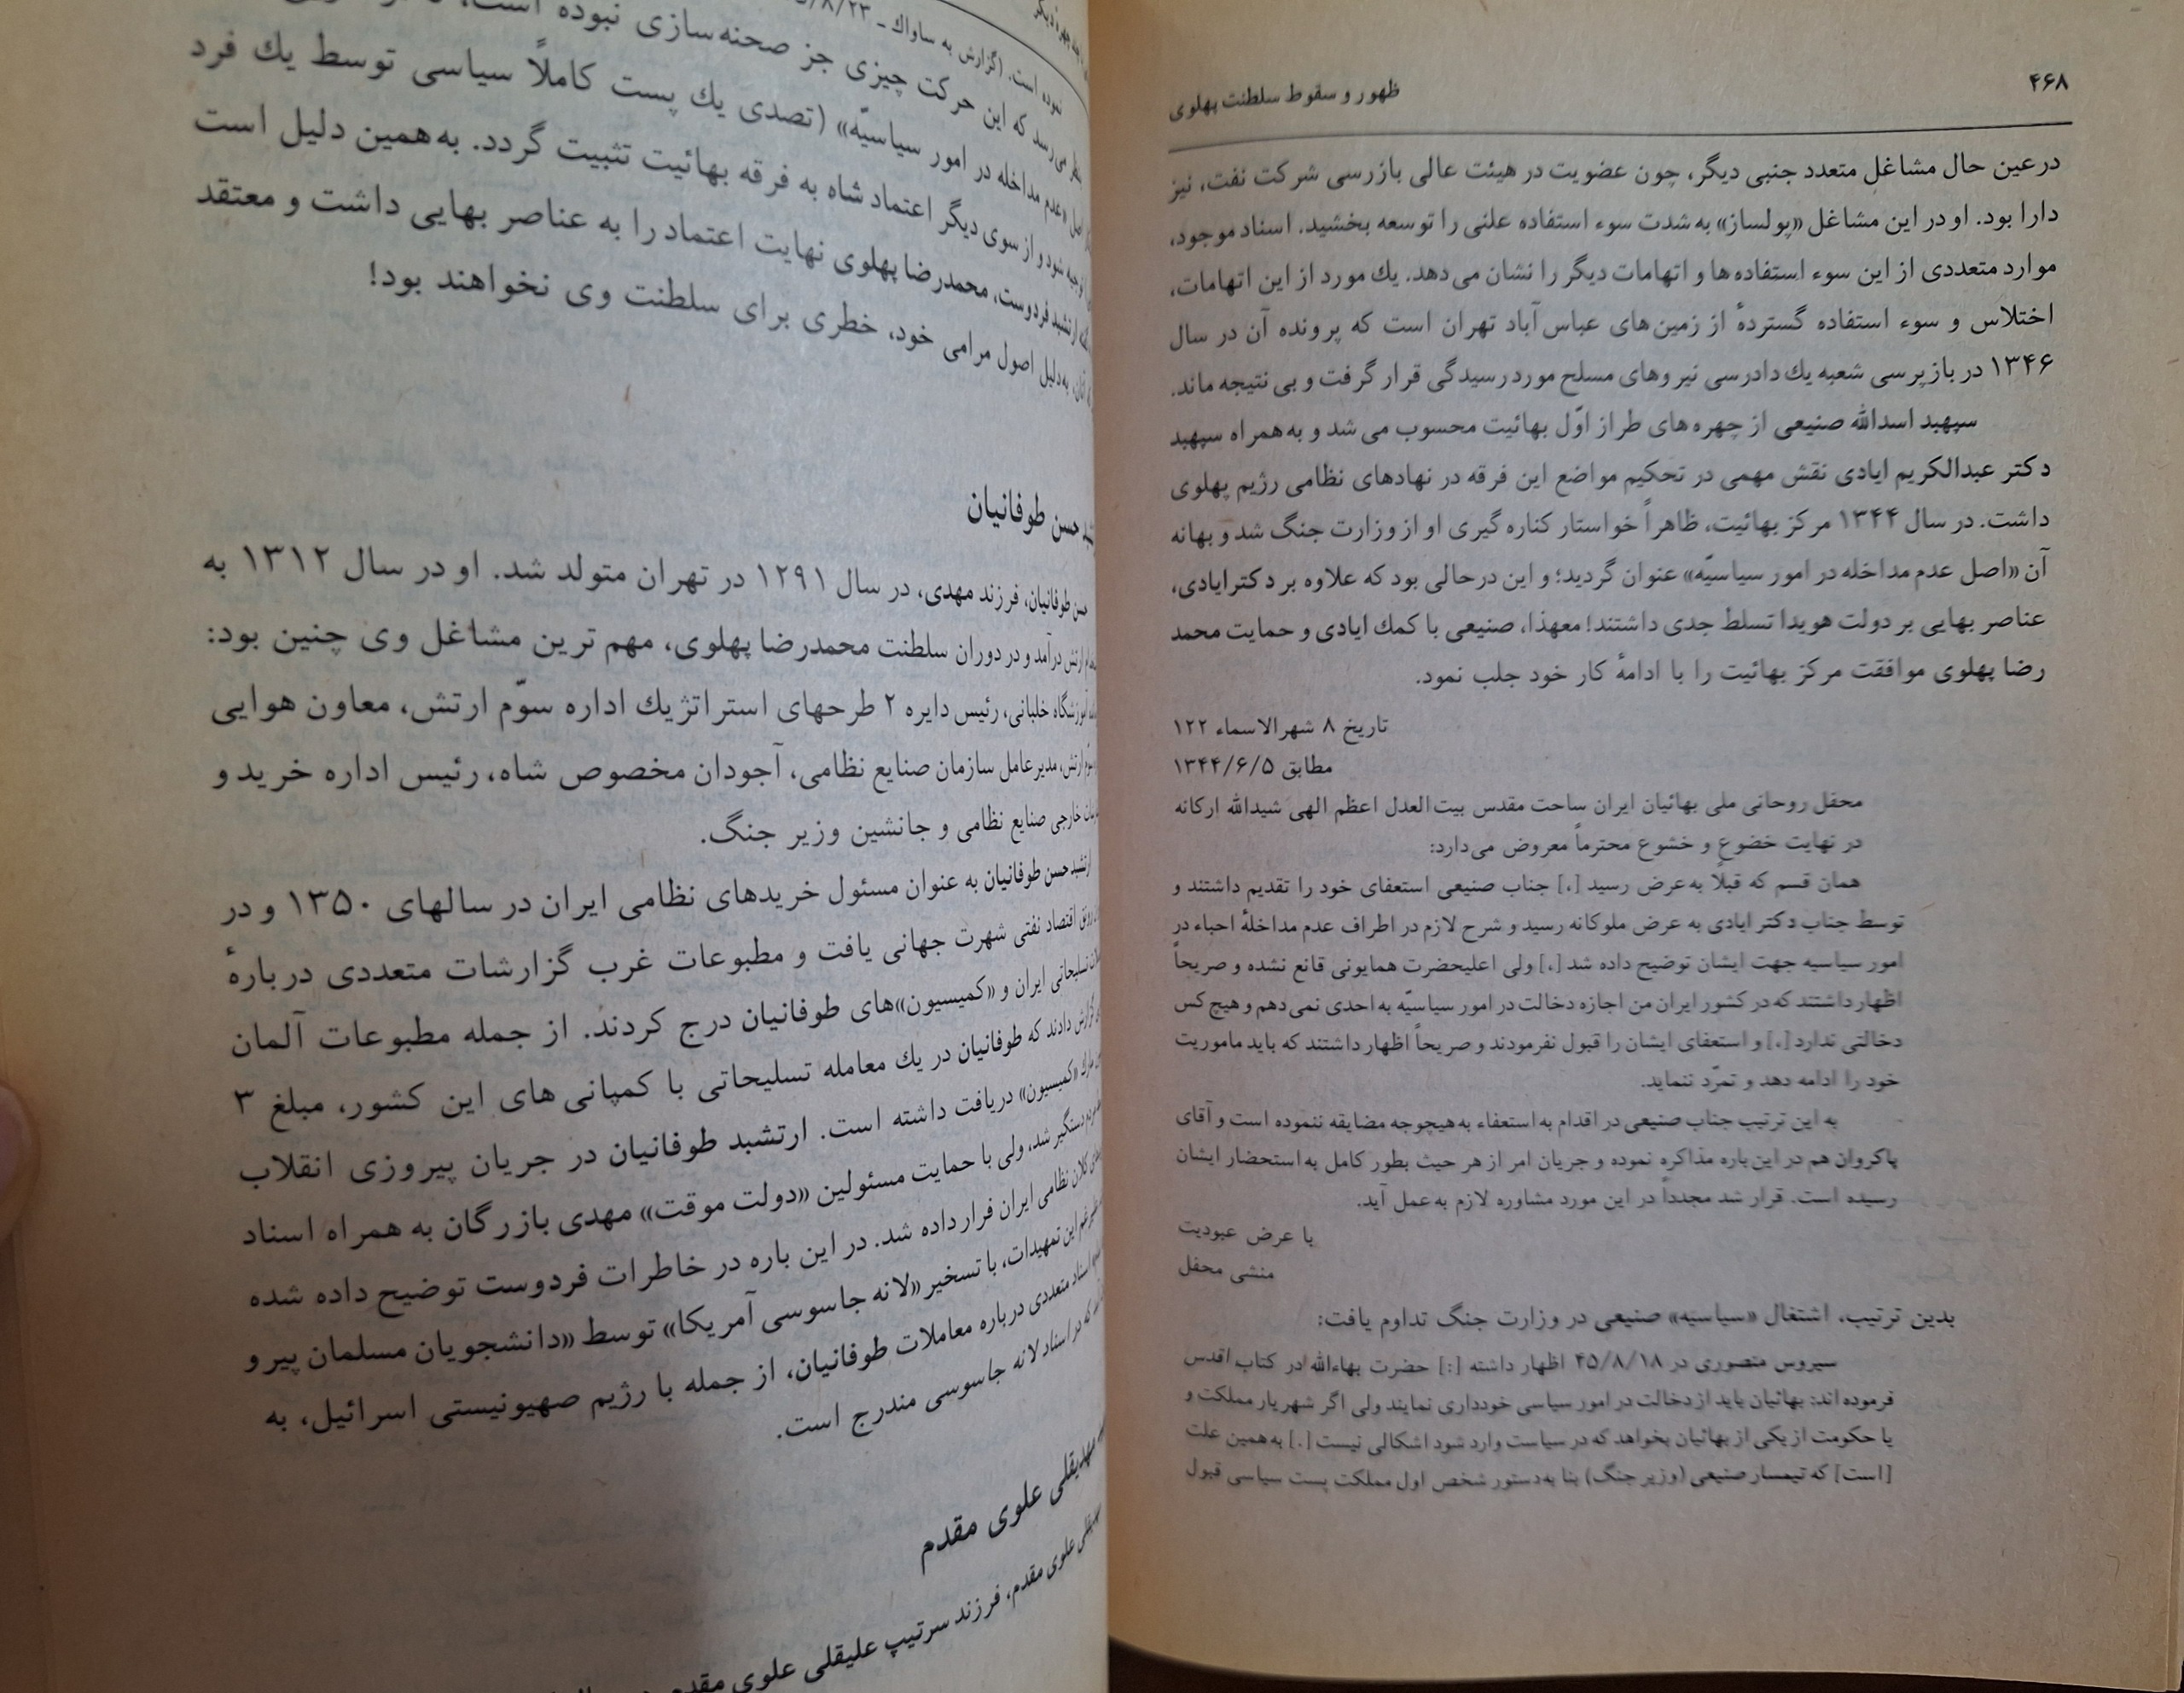 ۴۶۸
ظهور و سقوط سلطنت پهلوی
درعین حال مشاغل متعدد جنبی دیگر، چون عضویت در هیئت عالی بازرسی شرکت نفت، نیز
دارا بود. او در این مشاغل «پولساز» به شدت سوء استفاده علنی را توسعه بخشید. اسناد موجود،
موارد متعددی از این سوء استفاده‌ها و اتهامات دیگر را نشان می‌دهد. یك مورد از این اتهامات،
اختلاس و سوء استفاده گستردهٔ از زمین‌های عباس‌آباد تهران است که پرونده آن در سال
۱۳۴۶ در بازپرسی شعبه یك دادرسی نیروهای مسلح مورد رسیدگی قرار گرفت و بی نتیجه ماند.
سپهبد اسدالله صنیعی از چهره‌های طراز اوّل بهائیت محسوب می‌شد و به‌همراه سپهبد
دکتر عبدالکریم ایادی نقش مهمی در تحکیم مواضع این فرقه در نهادهای نظامی رژیم پهلوی
داشت. در سال ۱۳۴۴ مرکز بهائیت، ظاهراً خواستار کناره‌گیری او از وزارت جنگ شد و بهانه
آن «اصل عدم مداخله در امور سیاسیّه» عنوان گردید؛ و این درحالی بود که علاوه بر دکتر ایادی،
عناصر بهایی بر دولت هویدا تسلط جدی داشتند! معهذا، صنیعی با کمك ایادی و حمایت محمد
رضا پهلوی موافقت مرکز بهائیت را با ادامهٔ کار خود جلب نمود.
تاریخ ۸ شهرالاسماء ۱۲۲
مطابق ۱۳۴۴/۶/۵
محفل روحانی ملی بهائیان ایران ساحت مقدس بیت‌العدل اعظم الهی شیدالله ارکانه
در نهایت خضوع و خشوع محترماً معروض می‌دارد:
همان قسم که قبلاً به‌عرض رسید [،] جناب صنیعی استعفای خود را تقدیم داشتند و
توسط جناب دکتر ایادی به عرض ملوکانه رسید و شرح لازم در اطراف عدم مداخلهٔ احباء در
امور سیاسیه جهت ایشان توضیح داده شد [،] ولی اعلیحضرت همایونی قانع نشده و صریحاً
اظهار داشتند که در کشور ایران من اجازه دخالت در امور سیاسیّه به احدی نمی‌دهم و هیچ کس
دخالتی ندارد [،] و استعفای ایشان را قبول نفرمودند و صریحاً اظهار داشتند که باید ماموریت
خود را ادامه دهد و تمرّد ننماید.
به این ترتیب جناب صنیعی در اقدام به استعفاء به‌هیچوجه مضایقه ننموده است و آقای
پاکروان هم در این‌باره مذاکره نموده و جریان امر از هر حیث بطور کامل به استحضار ایشان
رسیده است. قرار شد مجدداً در این مورد مشاوره لازم به‌عمل آید.
با عرض عبودیت
منشی محفل
بدین ترتیب، اشتغال «سیاسیه» صنیعی در وزارت جنگ تداوم یافت:
سیروس منصوری در ۴۵/۸/۱۸ اظهار داشته [:] حضرت بهاءالله در کتاب اقدس
فرموده‌اند: بهائیان باید از دخالت در امور سیاسی خودداری نمایند ولی اگر شهریار مملکت و
یا حکومت از یکی از بهائیان بخواهد که در سیاست وارد شود اشکالی نیست [.] به‌همین علت
[است] که تیمسار صنیعی (وزیر جنگ) بنا به‌دستور شخص اول مملکت پست سیاسی قبول
نموده است. (گزارش به ساواك ـ
می‌رسد که این حرکت چیزی جز صحنه‌سازی نبوده است،
اصل «عدم مداخله در امور سیاسیّه» (تصدی یك پست کاملاً سیاسی توسط یك فرد
توجیه شود و از سوی دیگر اعتماد شاه به فرقه بهائیت تثبیت گردد. به‌همین دلیل است
ارتشبد فردوست، محمدرضا پهلوی نهایت اعتماد را به عناصر بهایی داشت و معتقد
آنان، به‌دلیل اصول مرامی خود، خطری برای سلطنت وی نخواهند بود!
حسن طوفانیان
حسن طوفانیان، فرزند مهدی، در سال ۱۲۹۱ در تهران متولد شد. او در سال ۱۳۱۲ به
ارتش درآمد و در دوران سلطنت محمدرضا پهلوی، مهم ترین مشاغل وی چنین بود:
آموزشگاه خلبانی، رئیس دایره ۲ طرحهای استراتژیك اداره سوّم ارتش، معاون هوایی
ارتش، مدیرعامل سازمان صنایع نظامی، آجودان مخصوص شاه، رئیس اداره خرید و
خارجی صنایع نظامی و جانشین وزیر جنگ.
ارتشبد حسن طوفانیان به عنوان مسئول خریدهای نظامی ایران در سالهای ۱۳۵۰ و در
رونق اقتصاد نفتی شهرت جهانی یافت و مطبوعات غرب گزارشات متعددی دربارهٔ
تسلیحاتی ایران و «کمیسیون»های طوفانیان درج کردند. از جمله مطبوعات آلمان
گزارش دادند که طوفانیان در یك معامله تسلیحاتی با کمپانی های این کشور، مبلغ ۳
مارك «کمیسیون» دریافت داشته است. ارتشبد طوفانیان در جریان پیروزی انقلاب
دستگیر شد، ولی با حمایت مسئولین «دولت موقت» مهدی بازرگان به همراه اسناد
کلان نظامی ایران فرار داده شد. در این باره در خاطرات فردوست توضیح داده شده
این تمهیدات، با تسخیر «لانه جاسوسی آمریکا» توسط «دانشجویان مسلمان پیرو
اسناد متعددی درباره معاملات طوفانیان، از جمله با رژیم صهیونیستی اسرائیل، به
که در اسناد لانه جاسوسی مندرج است.
مهدیقلی علوی مقدم
علوی مقدم، فرزند سرتیپ علیقلی علوی مقدم